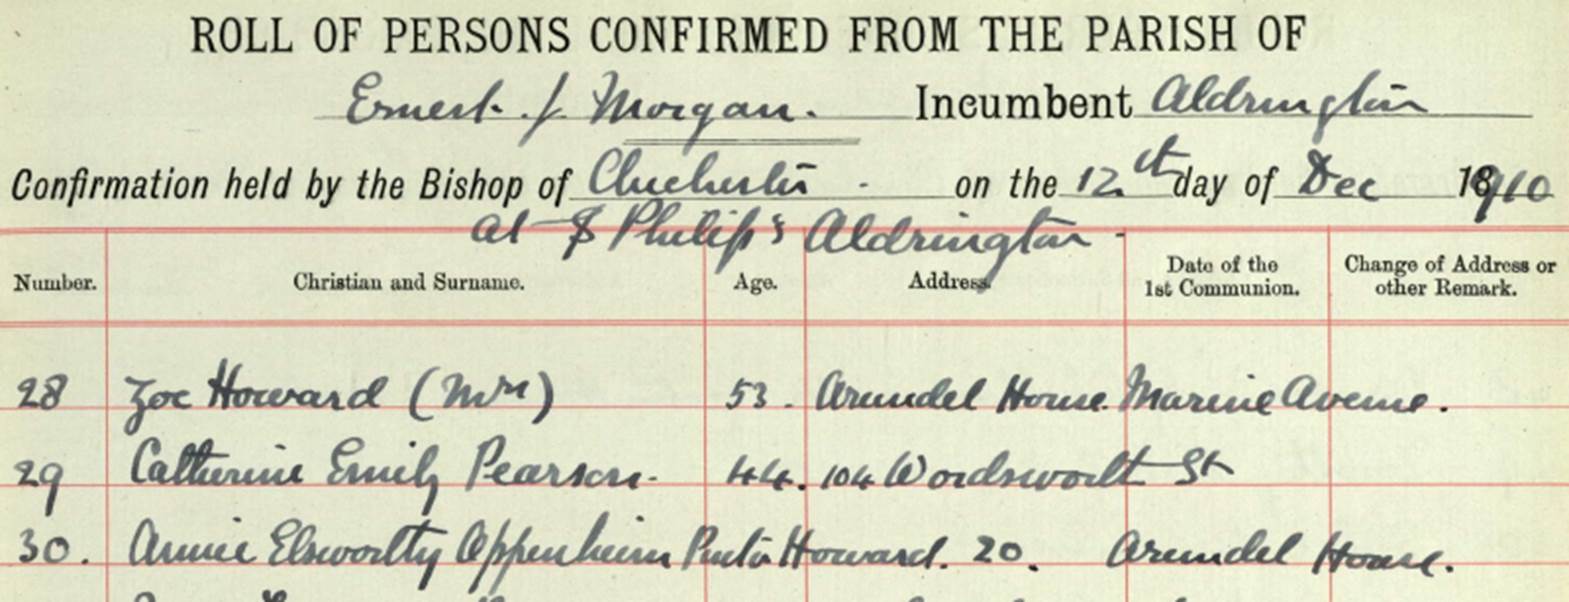 ROLL OF PERSONS CONFIRMED FROM THE PARISH OF
Ernest. J. Morgan. Incumbent Aldrington
Confirmation held by the Bishop of Chichester. on the 12th day of Dec 1910
at St Philip's Aldrington -
Number. Christian and Surname. Age. Address. Date of the 1st Communion. Change of Address or other Remark.
28 Zoe Howard (Mrs) 53. Arundel House. Marine Avenue.
29 Catherine Emily Pearson. 44. 104 Wordsworth St
30. Annie Elsworthy Oppenheim Howard. 20. Arundel House.